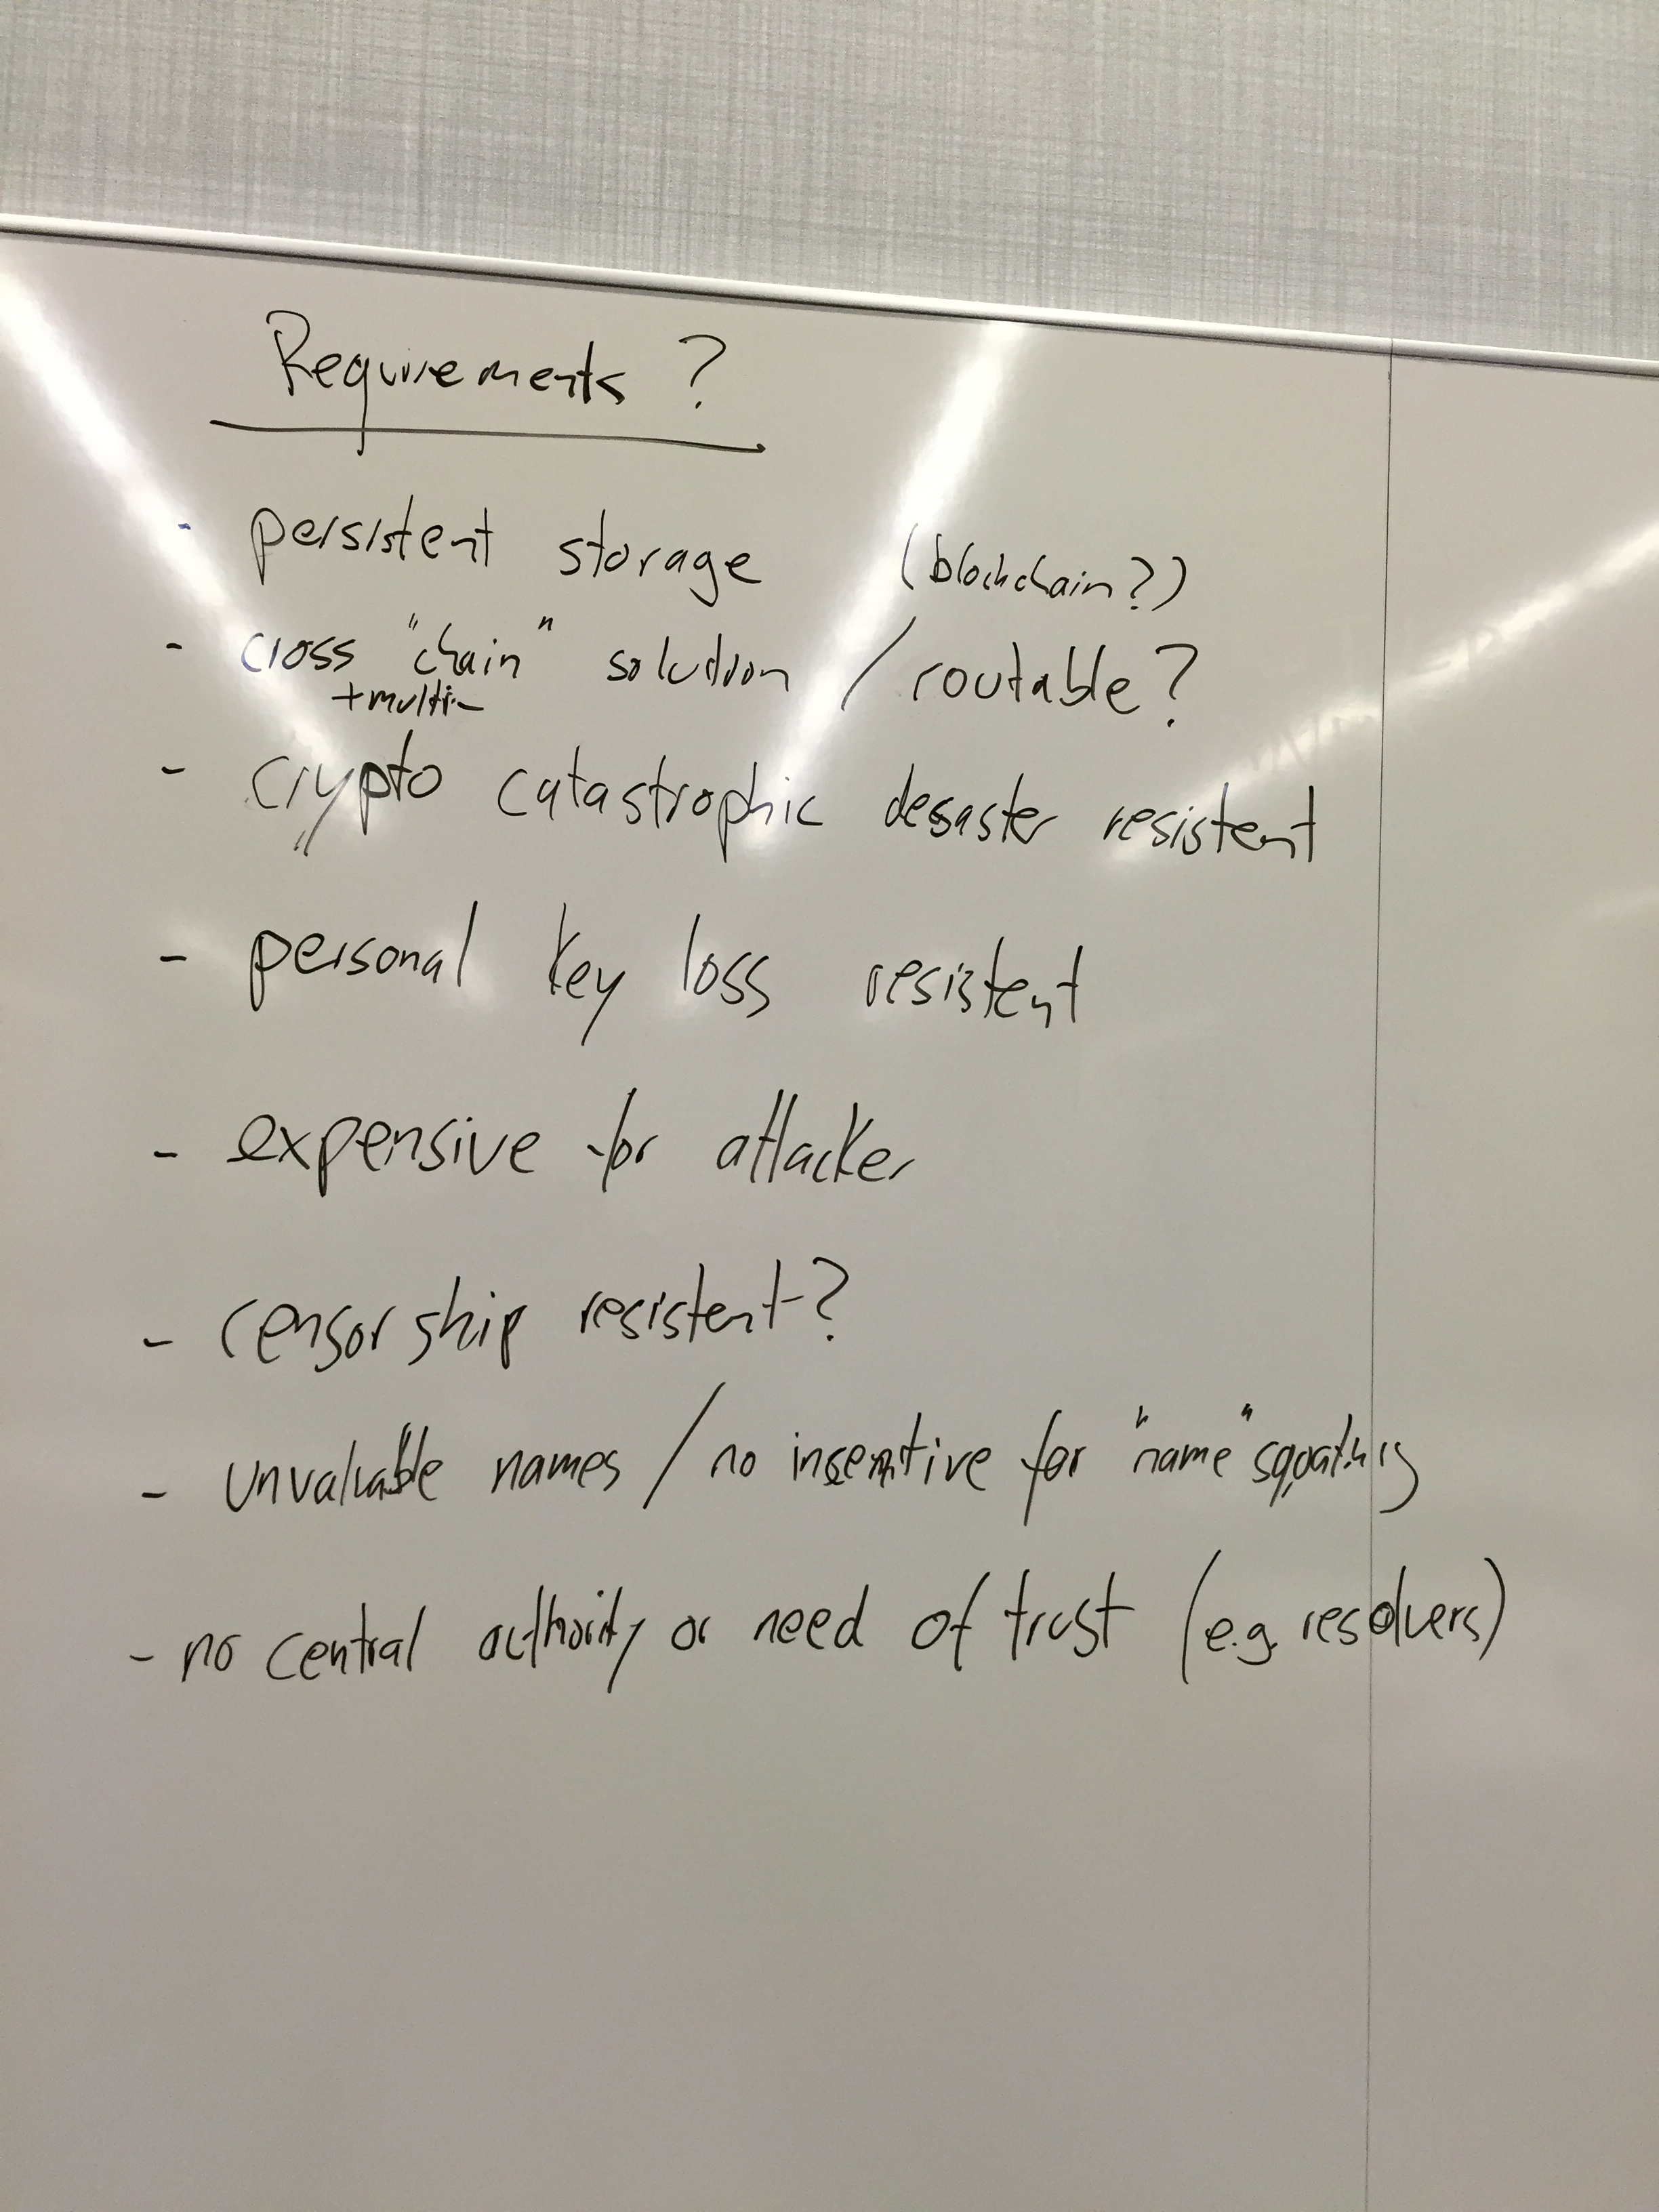 Requirements ?
- persistent storage (blockchain?)
- cross "chain" solution / routable?
+multi-
- crypto catastrophic desaster resistent
- personal key loss resistent
- expensive for attacker
- censorship resistent?
- unvaluable names / no insentive for "name" squatting
- no central authority or need of trust (e.g. resolvers)